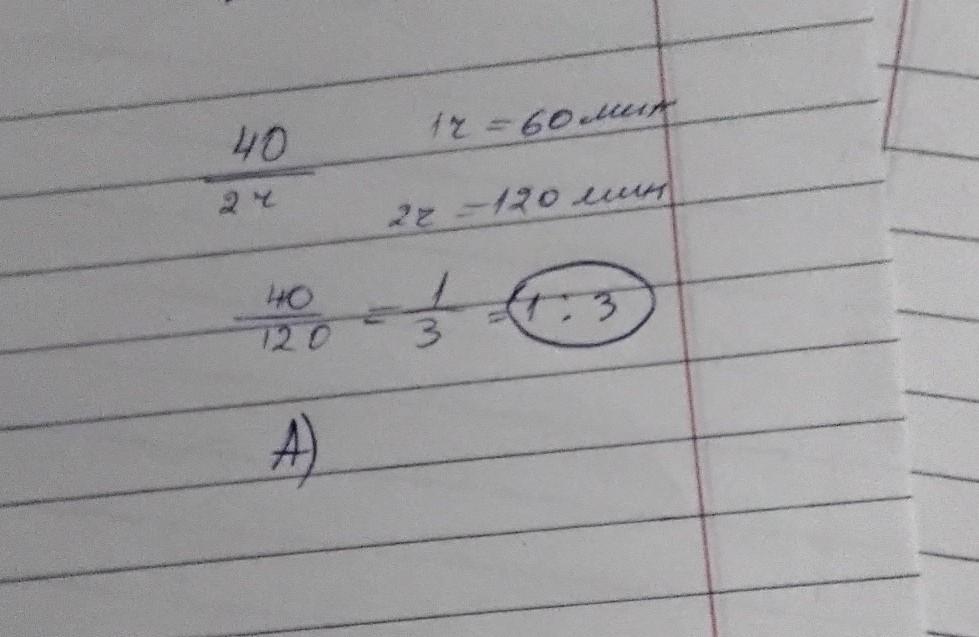 40/2ч 1ч = 60 мин
2ч = 120 мин
40/120 = 1/3 = 1 : 3
А)